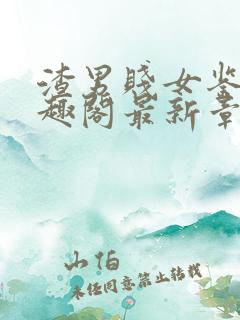 渣男贱女鉴
趣阁最新章
山怕
未经同意禁止转载